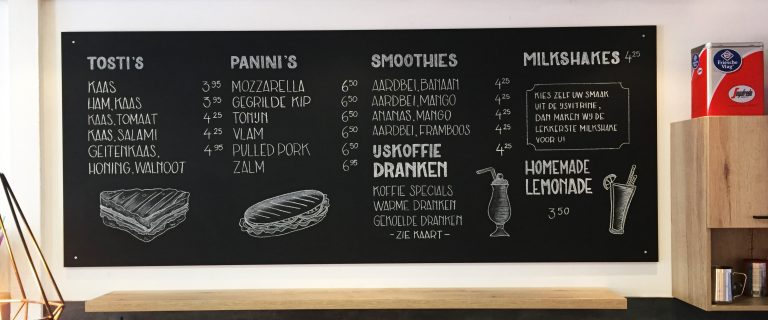 TOSTI'S
KAAS 3.95
HAM, KAAS 3.95
KAAS, TOMAAT 4.25
KAAS, SALAMI 4.25
GEITENKAAS, 4.95
HONING, WALNOOT
PANINI'S
MOZZARELLA 6.50
GEGRILDE KIP 6.50
TONIJN 6.50
VLAM 6.50
PULLED PORK 6.95
ZALM 6.95
SMOOTHIES
AARDBEI, BANAAN 4.25
AARDBEI, MANGO 4.25
ANANAS, MANGO 4.25
AARDBEI, FRAMBOOS 4.25
IJSKOFFIE 4.25
DRANKEN
KOFFIE SPECIALS
WARME DRANKEN
GEKOELDE DRANKEN
- ZIE KAART -
MILKSHAKES 4.25
KIES ZELF UW SMAAK
UIT DE IJSVITRINE,
DAN MAKEN WIJ DE
LEKKERSTE MILKSHAKE
VOOR U!
HOMEMADE
LEMONADE
3.50
Friesche
Vlag
Segafredo